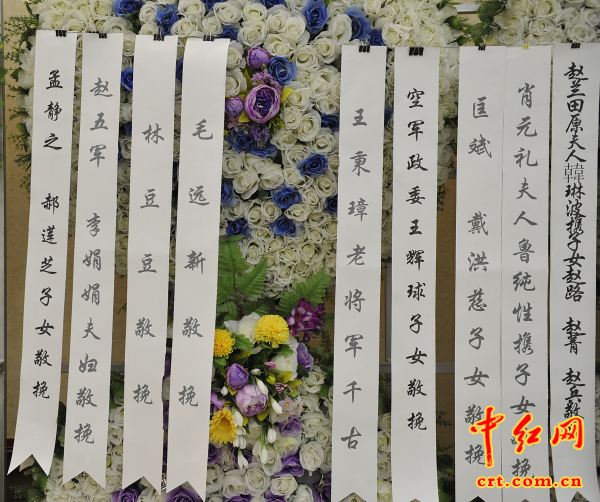 赵兰田原夫人韓琳波携子女赵路 赵菁 赵兵敬
肖元礼夫人鲁纯性携子女敬挽
匡斌 戴洪慈子女敬挽
空军政委王辉球子女敬挽
王秉璋老将军千古
毛远新敬挽
林豆豆敬挽
赵五军 李娟娟夫妇敬挽
孟静之 郝莲芝子女敬挽
中红网
crt.com.cn